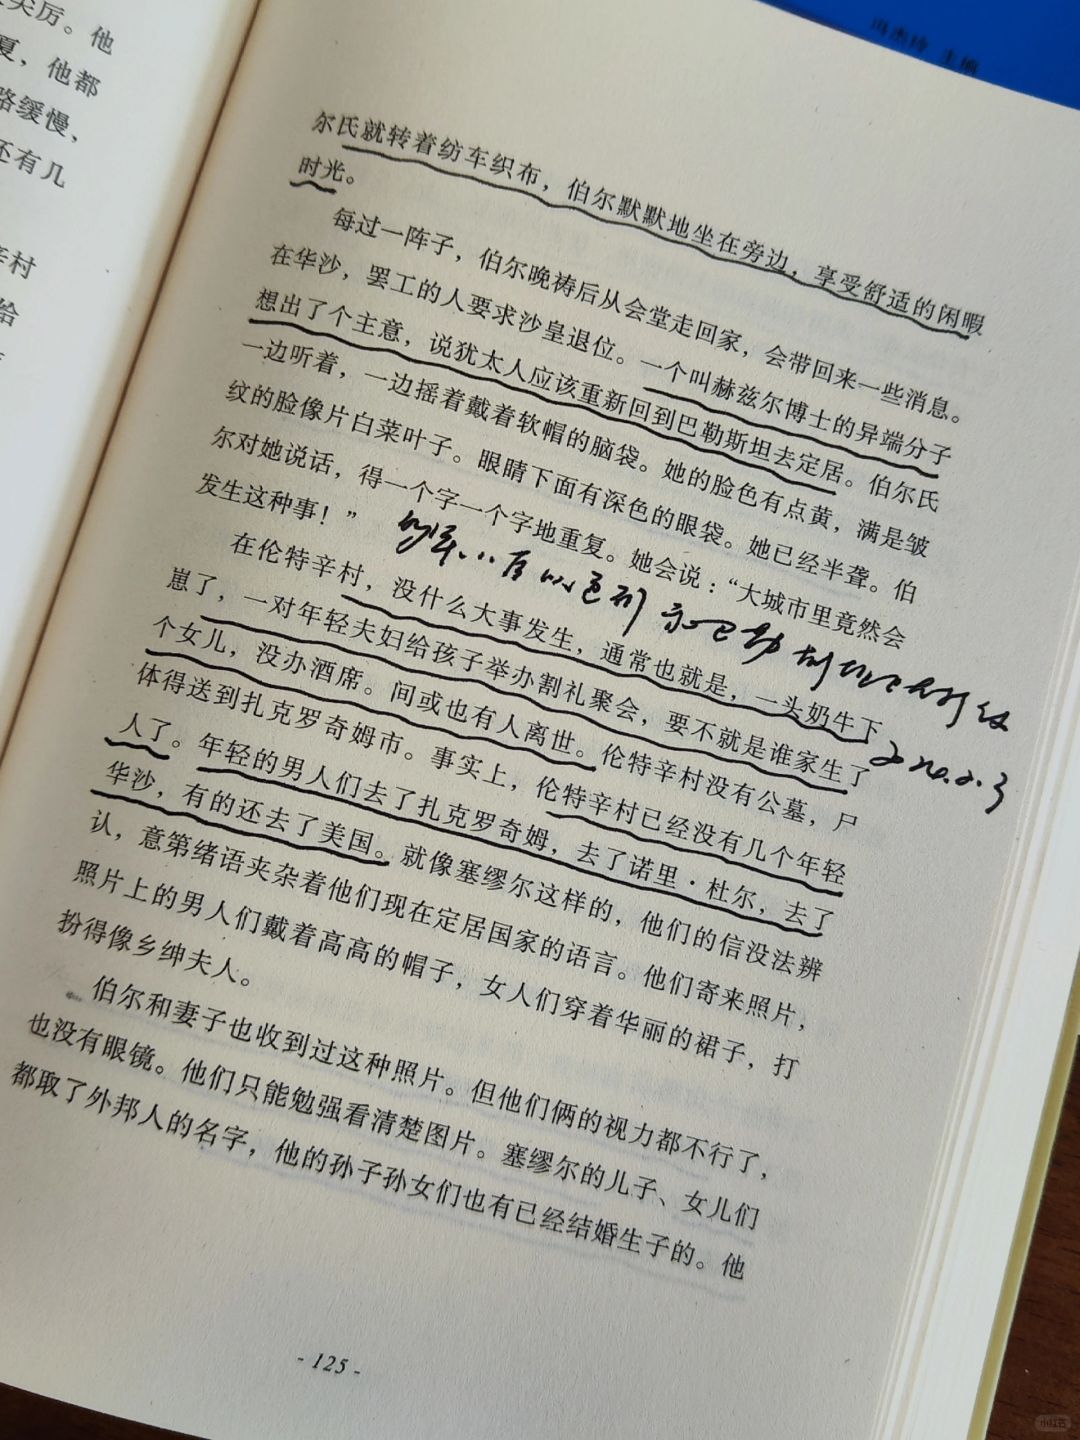 尖厉。他
夏，他都
路缓慢，
还有几
辛村
给
冯杰玲 主编
尔氏就转着纺车织布，伯尔默默地坐在旁边，享受舒适的闲暇
时光。
每过一阵子，伯尔晚祷后从会堂走回家，会带回来一些消息。
在华沙，罢工的人要求沙皇退位。一个叫赫兹尔博士的异端分子
想出了个主意，说犹太人应该重新回到巴勒斯坦去定居。伯尔氏
一边听着，一边摇着戴着软帽的脑袋。她的脸色有点黄，满是皱
纹的脸像片白菜叶子。眼睛下面有深色的眼袋。她已经半聋。伯
尔对她说话，得一个字一个字地重复。她会说：“大城市里竟然会
发生这种事！”
在伦特辛村，没什么大事发生，通常也就是，一头奶牛下
崽了，一对年轻夫妇给孩子举办割礼聚会，要不就是谁家生了
个女儿，没办酒席。间或也有人离世。伦特辛村没有公墓，尸
体得送到扎克罗奇姆市。事实上，伦特辛村已经没有几个年轻
人了。年轻的男人们去了扎克罗奇姆，去了诺里·杜尔，去了
华沙，有的还去了美国。就像塞缪尔这样的，他们的信没法辨
认，意第绪语夹杂着他们现在定居国家的语言。他们寄来照片，
照片上的男人们戴着高高的帽子，女人们穿着华丽的裙子，打
扮得像乡绅夫人。
伯尔和妻子也收到过这种照片。但他们俩的视力都不行了，
也没有眼镜。他们只能勉强看清楚图片。塞缪尔的儿子、女儿们
都取了外邦人的名字，他的孙子孙女们也有已经结婚生子的。他
- 125 -
小红书